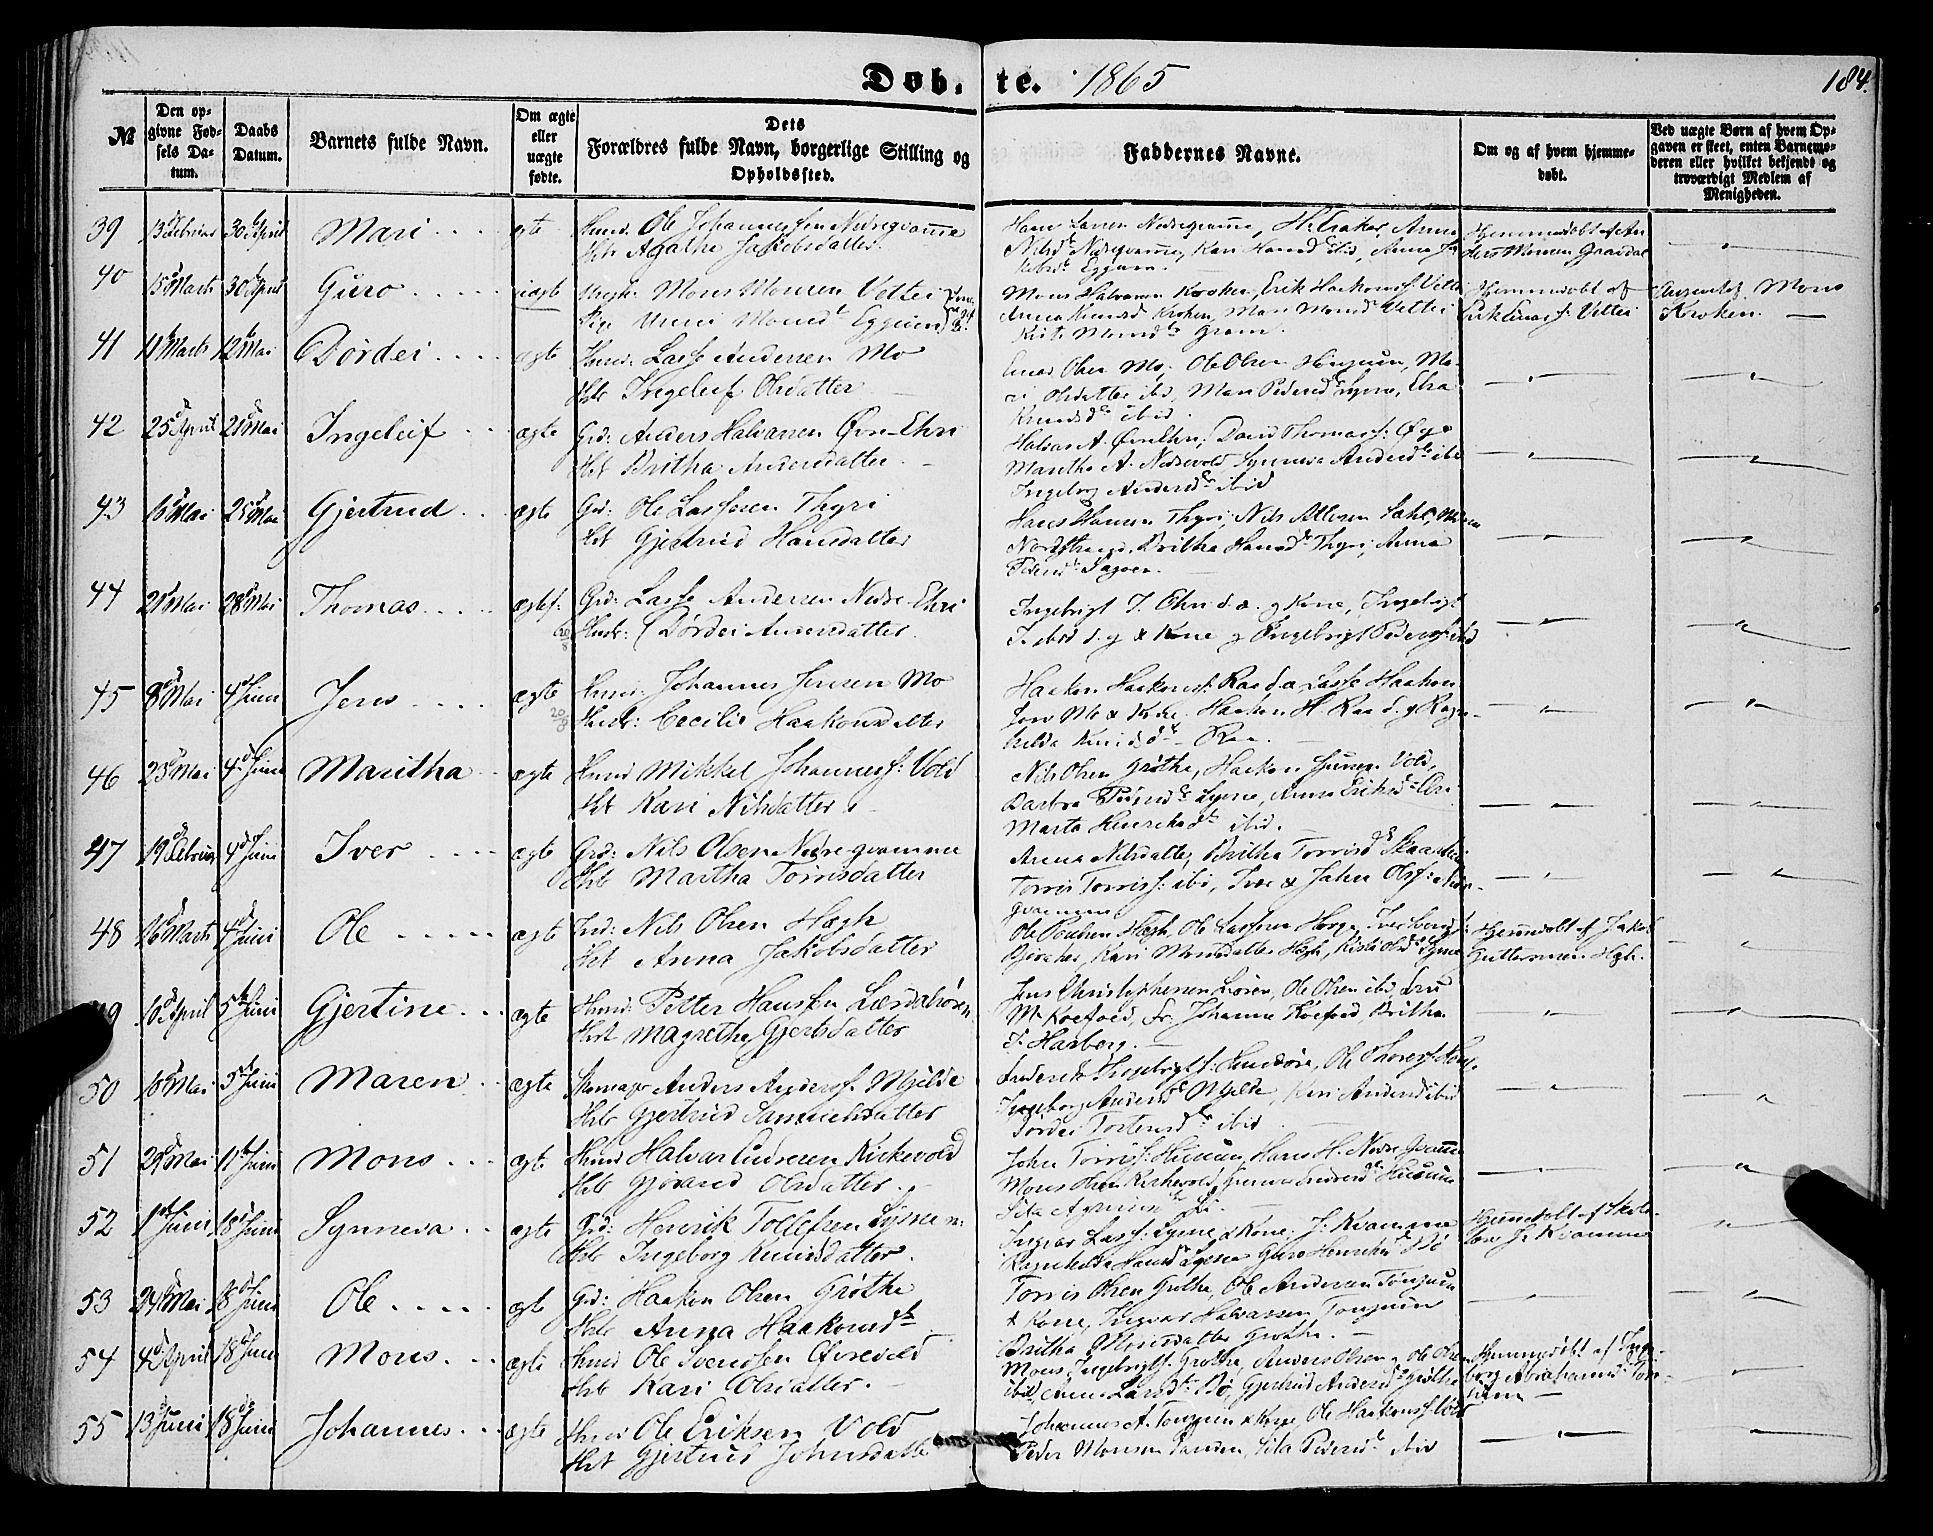 Døb- te. 1865
184.
№
Den op-
givne Fød-
sels Da-
tum.
Daabs
Datum.
Barnets fulde Navn.
Om ægte
eller
uægte
fødte.
Dets
Forældres fulde Navn, borgerlige Stilling og
Opholdssted.
Faddernes Navne.
Om og af hvem hjemme-
døbt.
Ved uægte Børn af hvem Op-
gaven er skeet, enten Barnemo-
deren eller hvilket bekjendt og
troværdigt Medlem af
Menigheden.
39 13d Februar 30d April Mari ægte Huusm. Ole Johannessen Nedreqvamme
Hst. Agathe Jakobsdatter.
Hans Larsen Nedreqvamme, Anna
Nilsd. Nedreqvamme, Kari Hansd. ibid, Anna
Eggum.
Hjemmedøbt af
Monsen Gravdal
40 15d Marts 30d April Guro uægte Ungk. Mons Monsen Vettei
Pige Unni Monsd. Eggum
Mons Halvorsen Kroken, Erik Haakonsf. Vettei
Anna Knudsd. Kroken, Mari Monsd. Vettei
Monsd. Gram.
Hjemmedøbt af
Vettei
Mons
Kroken. —
41 11d Marts 12d Mai Dørdei ægte Huusm. Lasse Andersen Mo
Hst. Ingeleif Olsdatter
Einar Olsen Mo, Ole Olsen Hougum, Ma-
ri Olsdatter ibid, Mari Pedersd. Lysne, Elsa
Knudsd. ibid.
42 25d April 21d Mai Ingeleif ægte Grd: Anders Halvorsen Øvre-Ehri
Hst Britha Andersdatter.
Halvor A. Øvre Ehri, David Thomasf. Øye
Martha A. Nedrevold, Synneva Andersd. ibid
Ingeborg Andersd. ibid
43 16d Mai 25d Mai Gjertrud ægte Grd: Ole Lassesen Thyri
Hst Gjertrud Hansdatter
Hans Hansen Thyri, Nils Attesen
Nordstrand, Britha Hansd. Thyri, Anna
Pedersd.
44 21d Mai 28d Mai Thomas ægte Grd: Lasse Andersen Nedre-Ehri
Hustr: Dørdei Andersdatter.
Ingebrigt J. Ehri d. æ. & Kone, Ingebrigt
J. ibid d. y & Kone & Ingebrigt ibid
45 8d Mai 4d Juni Jens ægte Huusm: Johannes Jensen Mo
Hustr: Cecilie Haakonsdatter
Haakon Haakonsf. Raa d. æ Lasse Haakon
sen Mo & Kone. Haakon H. Raa d. y Ragn-
hilda Knudsd. Raa.
46 23d Mai 4d Juni Maritha ægte Huusm Mikkel Johannesf. Vold
Hst. Kari Nilsdatter
Nils Olsen Grøthe, Haakon Vold,
Barbra Lysne, Anna Eriksd. Eri
Marta Henriksd. ibid.
47 19d Februar 4d Juni Iver ægte Grd: Nils Olsen Nedreqvamme
Hst. Martha Torrisdatter
Anna Nilsdatter, Britha Torrisd.
Torris Torrisf. ibid, Iver & John Olsf.
Qvammen
48 26d Marts 4d Juni Ole ægte Grd: Nils Olsen Hægh
Hst Anna Jakobsdatter
Ole Poulsen Hægh, Ole Lassesen Hauge, Iver
Kari Monsdatter Hægh,
Hjemmedøbt af Jakob
Guttormsen Hgh.
49 10d April 5d Juni Gjertine ægte Huusm: Petter Hansen Lærdalsøren
Hst Magrethe Gjertsdatter
Jens Christophersen Løren, Ole Olsen ibid, Fru
M. Koefoed, Fr. Johanne Koefoed, Britha
J. Harberg.
50 18d Mai 5d Juni Maren ægte Anders Andersf. Mjelde
Hst. Gjertrud Samuelsdatter
Frederik Ingebrigtsf. Ole
Ingeborg Andersd. Mjelde, Kari Andersd ibid
Dørdei Torstensd. ibid
51 29d Mai 11d Juni Mons ægte Huusm Halvor Endresen Kirkevold
Hst. Gjøran Olsdatter.
John Torrisf. Husum, Hans H. Nedre Qvamme
Mons Olsen Kirkevold, Endresd. Husum
52 1d Juni 18d Juni Synneva ægte Grd: Henrik Tollefsen Lysne
Hst. Ingeborg Knudsdatter.
Ingvar Lasf. Lysne & Kone, J. Kvamme
Ragnhilda Hansd. Lysne, Guro Henriksd. Bø
Hjemmedøbt af Skole-
lær J. Kvamme
53 24d Mai 18d Juni Ole ægte Grd: Haakon Olsen Grøthe
Hst. Anna Haakonsd.
Torris Olsen Grøthe, Ole Andersen Tønjum
& Kone, Ingvar Halvorsen Tønjum
Britha Monsdatter Grøthe.
54 4d April 18d Juni Mons ægte Huusm Ole Svendsen Øvrevold
Hst. Kari Olsdatter.
Mons Ingebrigtf. Grøthe, Anders Olsen & Ole Olsen
ibid, Anna Larsd. Bø, Gjertrud Andersd. Grøthe
Hjemmedøbt af Inge-
borg Abrahamsd Tøn-
jum
55 13d Juni 18d Juni Johannes ægte Huusm Ole Eriksen Vold
Hst Gjertrud Johnsdatter
Johannes A. Tønjum & Kone, Ole Haakonsf. Vold
Peder Monsen Sanden, Sita Pedersd. ibid